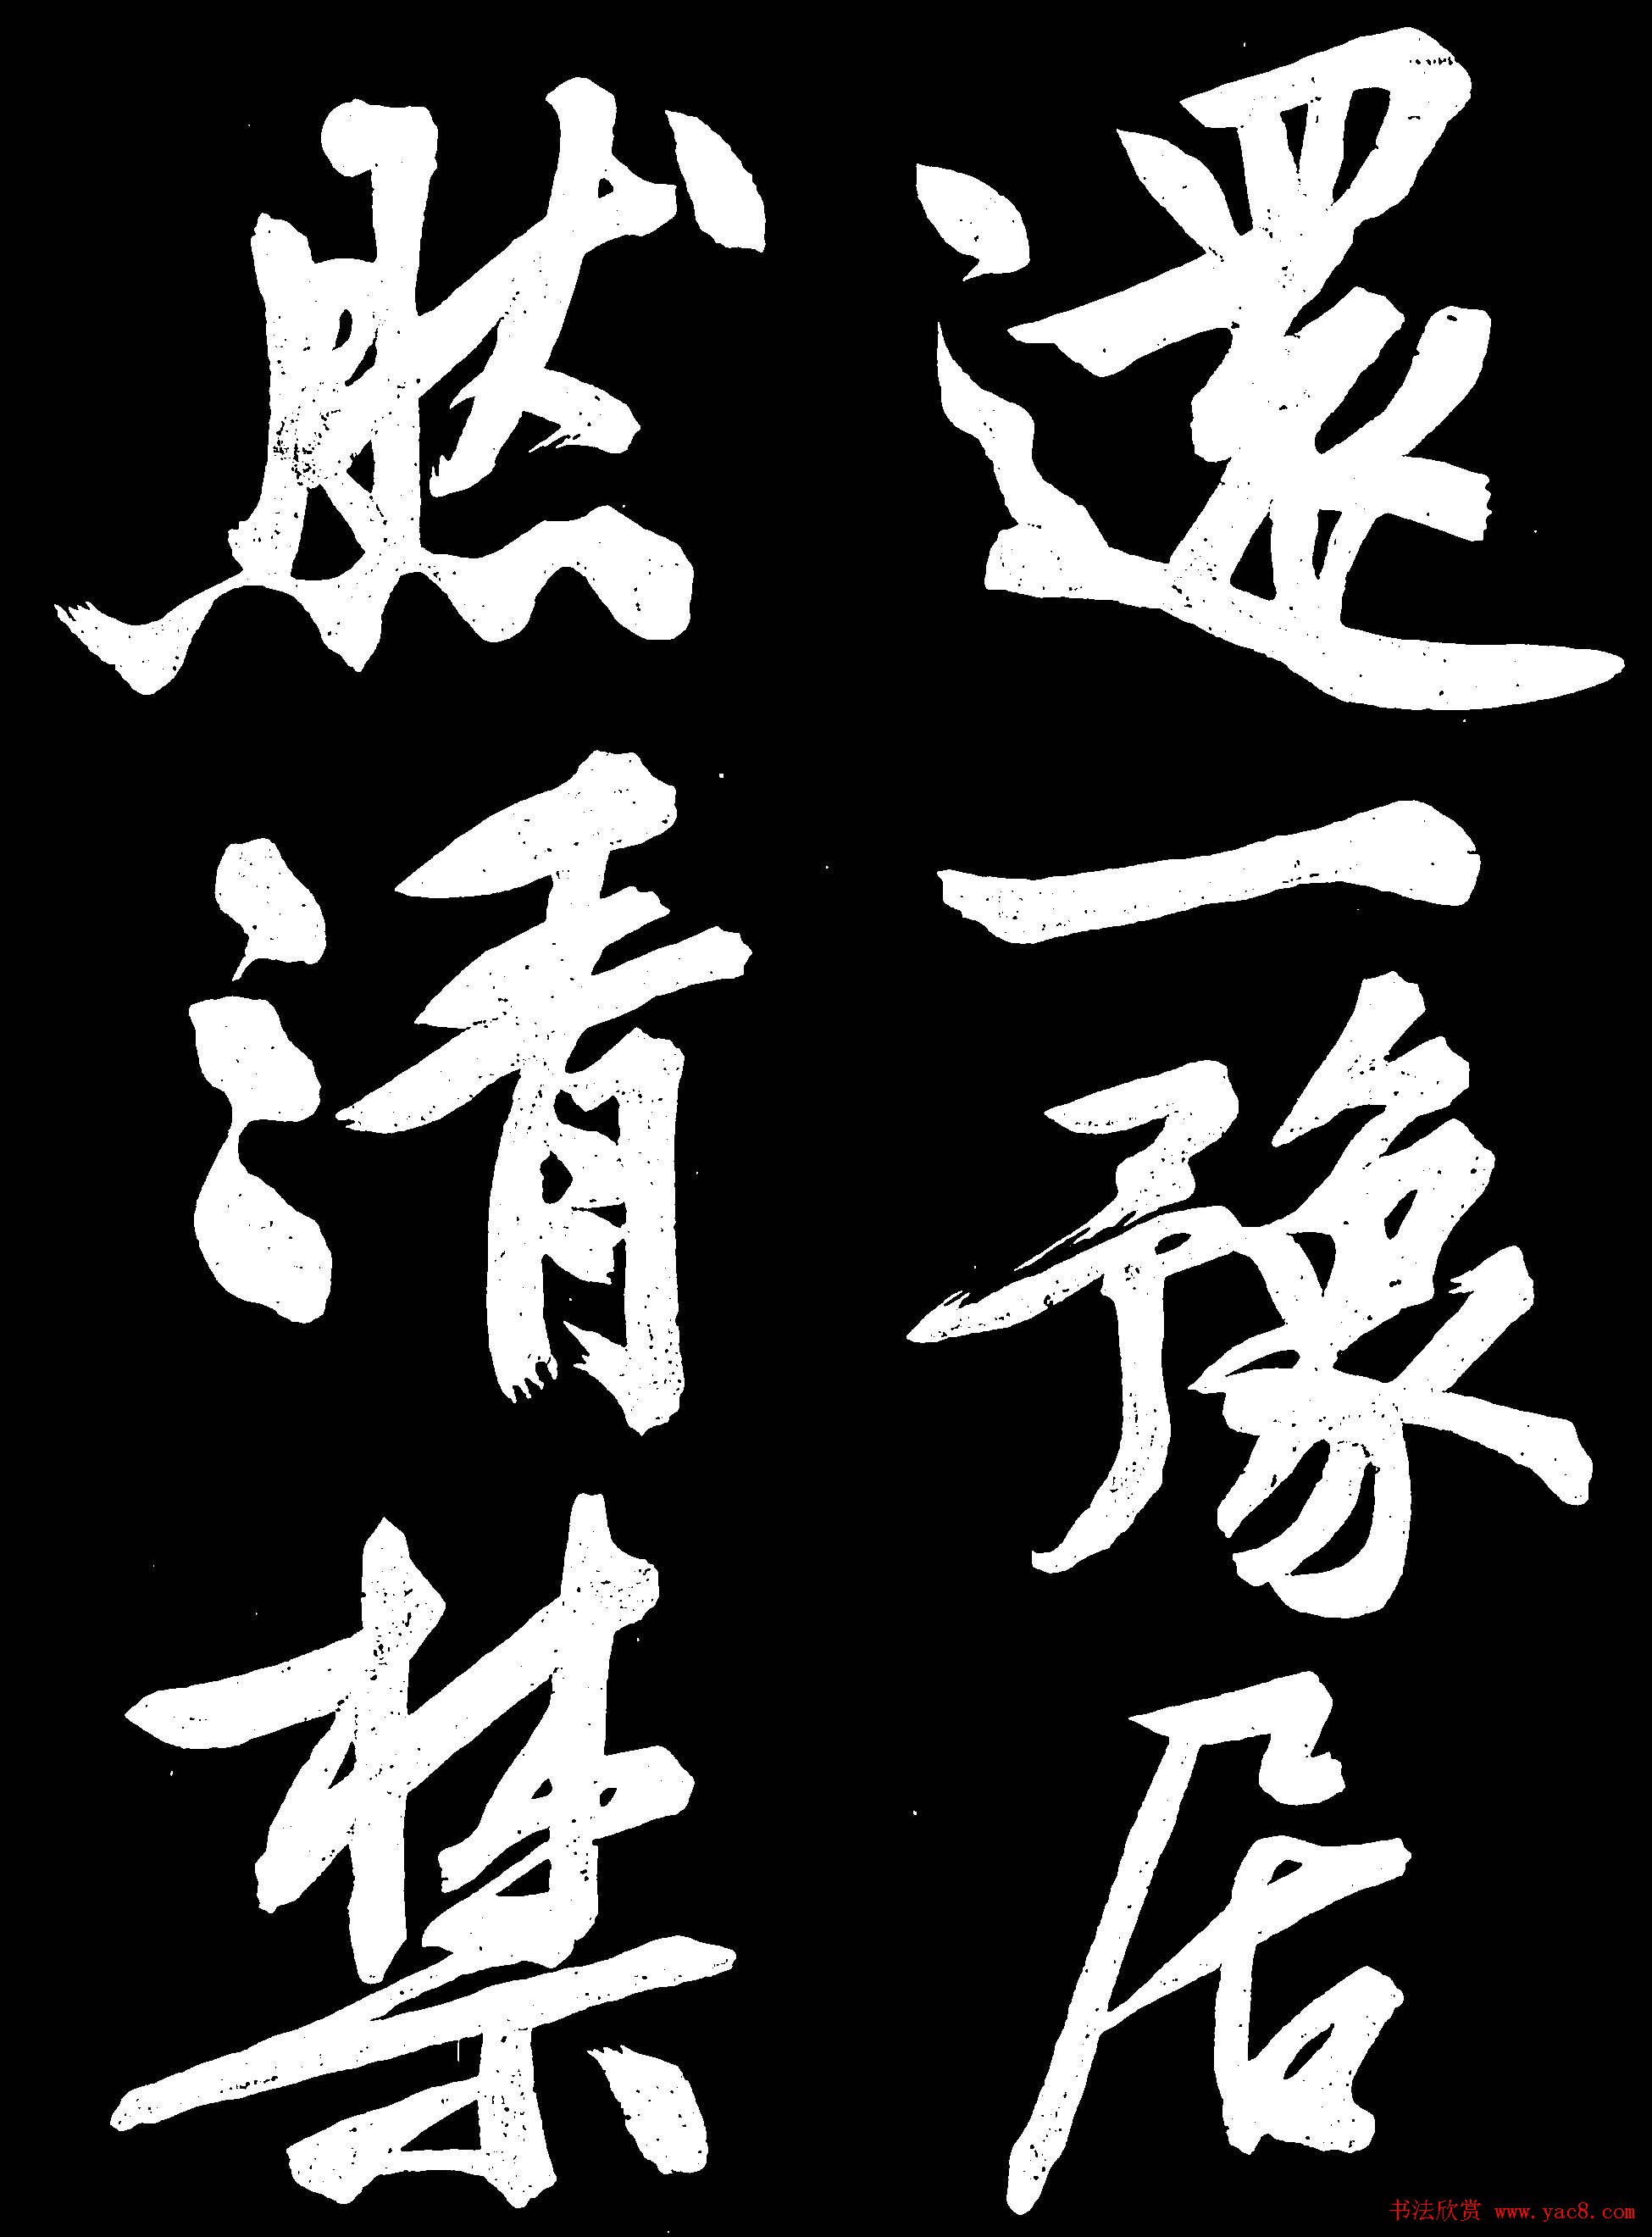 還一豫居
然清
书法欣赏 www.yac8.com